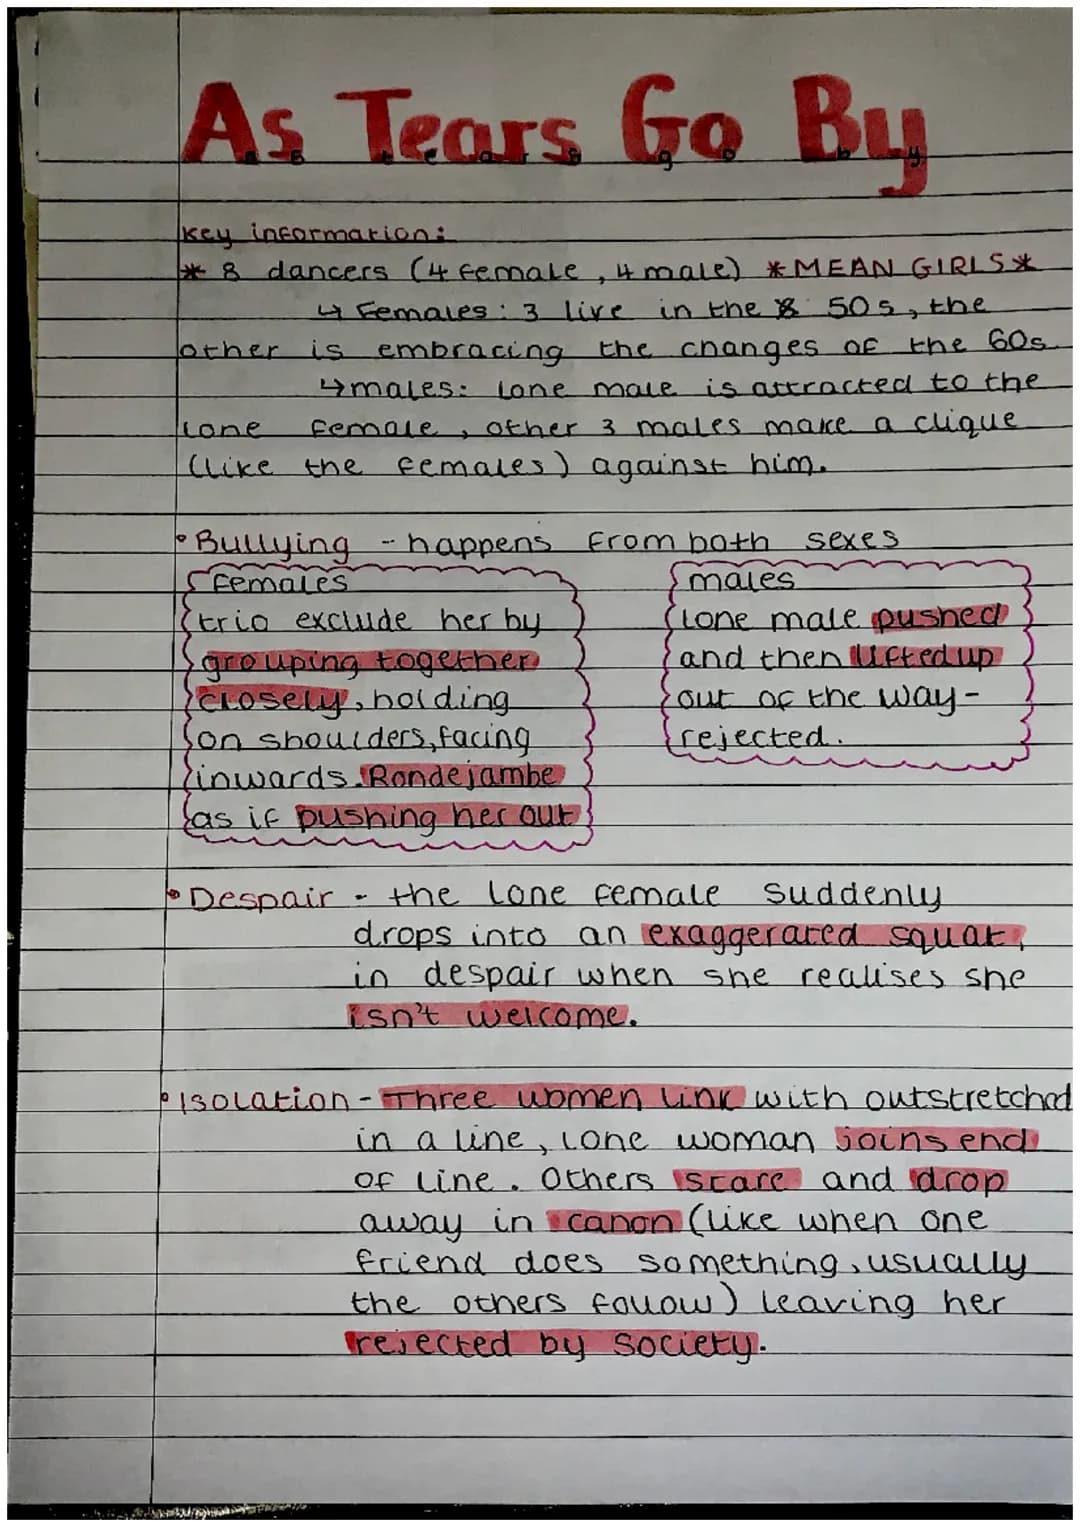 As Tears Go By
Key information:
* 8 dancers (4 female, 4 male) *MEAN GIRLS*
↳ Females: 3 live in the 50s, the
other is embracing the changes of the 60s.
↳ males: Lone male is attracted to the
lone female, other 3 males make a clique
(like the females) against him.
• Bullying - happens from both sexes
females
trio exclude her by
grouping together
closely, holding
on shoulders, facing
inwards. Rondejambe
as if pushing her out
males
Lone male pushed
and then lifted up
out of the way -
rejected.
• Despair - the lone female suddenly
drops into an exaggerated squat,
in despair when she realises she
isn't welcome.
• Isolation - Three women link with outstretched
in a line, lone woman joins end
of line. Others stare and drop
away in canon (like when one
friend does something, usually
the others follow) leaving her
rejected by society.